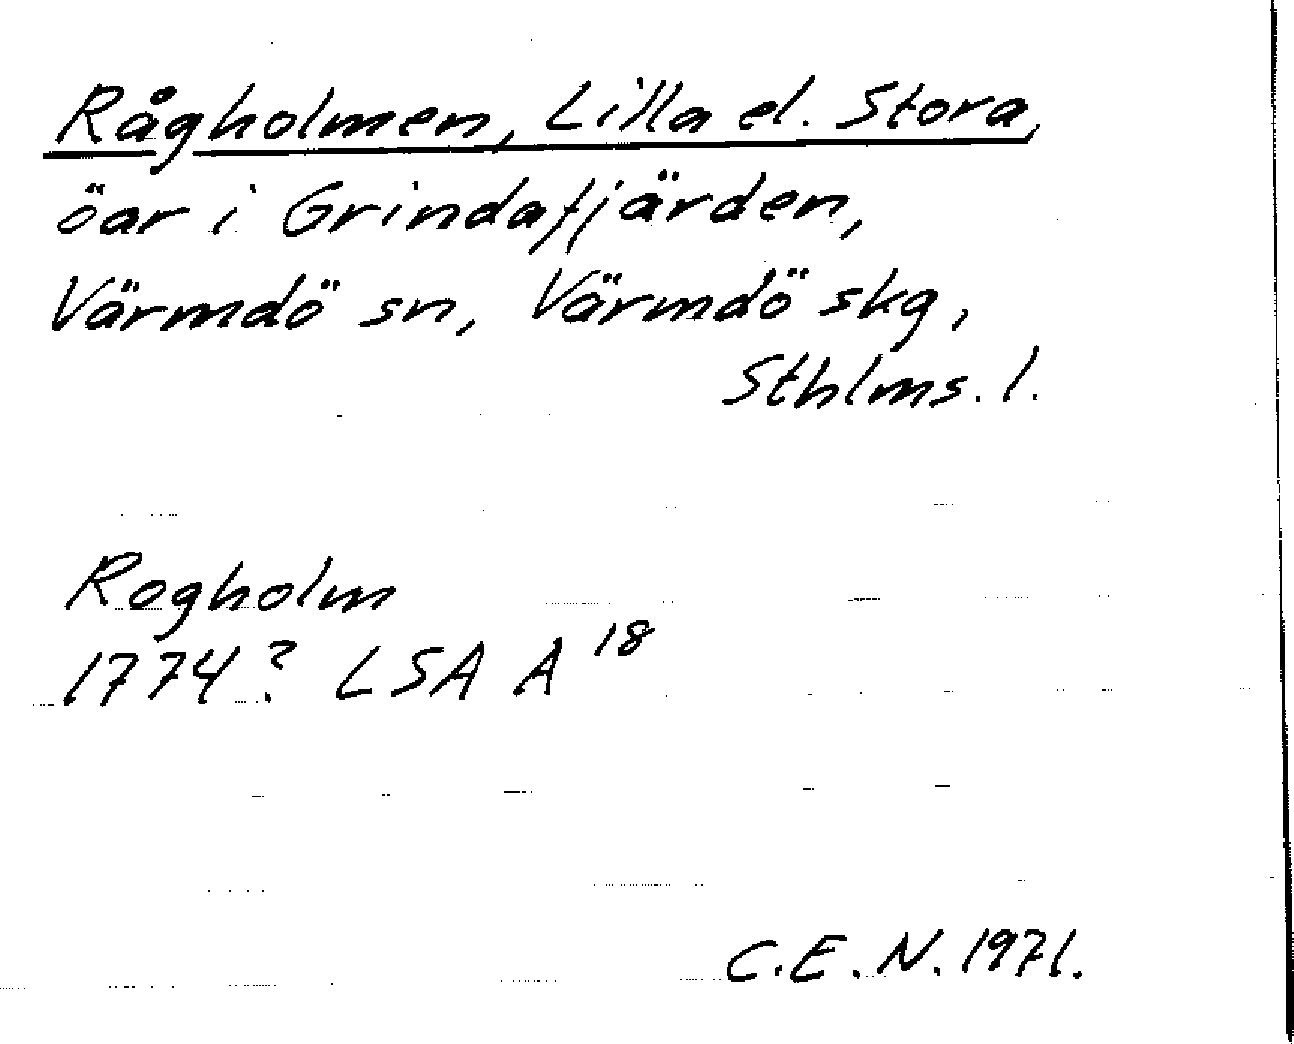 Rågholmen, Lilla el. Stora,
öar i Grindafjärden,
Värmdö sn, Värmdö skg,
Sthlms. l.
Rogholm
1774? LSA A 18
C.E.N. 1971.